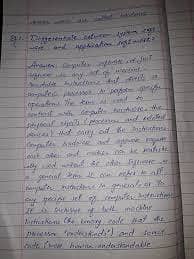 these words are called hardware
Q.1. Differentiate between system soft-
ware and application software?
Answer: Computer software or just
software is any set of machine-
readable instructions that directs a
computer processor to perform specific
operations. The term is used to
contrast with computer hardware, the
physical objects (processor and related
devices) that carry out the instructions.
Computer hardware and software require
each other and neither can be realistic-
ally used without the other. Software is
a general term. It can refer to all
computer instructions in general or to
any specific set of computer instructions.
It is inclusive of both machine
instructions (the binary code that the
processor "understands") and source
code (more human-understandable